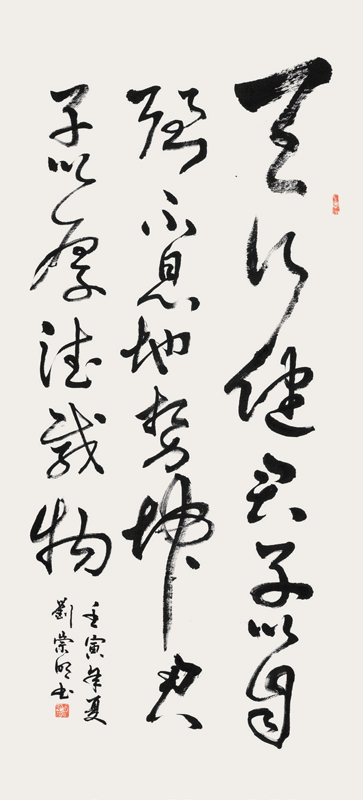 天行健君子以自
强不息地势坤君
子以厚德载物
壬寅年夏
刘崇明书